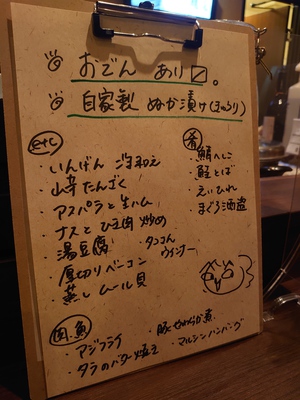 おでん あり〼。
自家製 ぬか漬け(きゅうり)
etc
・いんげん ごま和え
・山芋たんざく
・アスパラと生ハム
・ナスとひき肉炒め
・湯豆腐
・タコさんウインナー
・厚切りベーコン
・蒸しムール貝
肴
・鯖へしこ
・鮭とば
・えいひれ
・まぐろ酒盗
肉・魚
・アジフライ
・豚やわらか煮
・タラのバター焼き
・マルシンハンバーグ